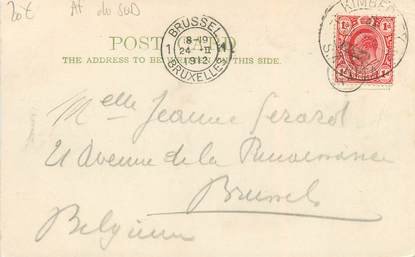 20€ Af du SUD
KIMBERLEY
BRUSSEL
1 8-19
24 II
1912
BRUXELLES
POST CARD
THE ADDRESS TO BE ON THIS SIDE.
Melle Jeanne Gerard
21 Avenue de la Renaissance
Brussels
Belgium